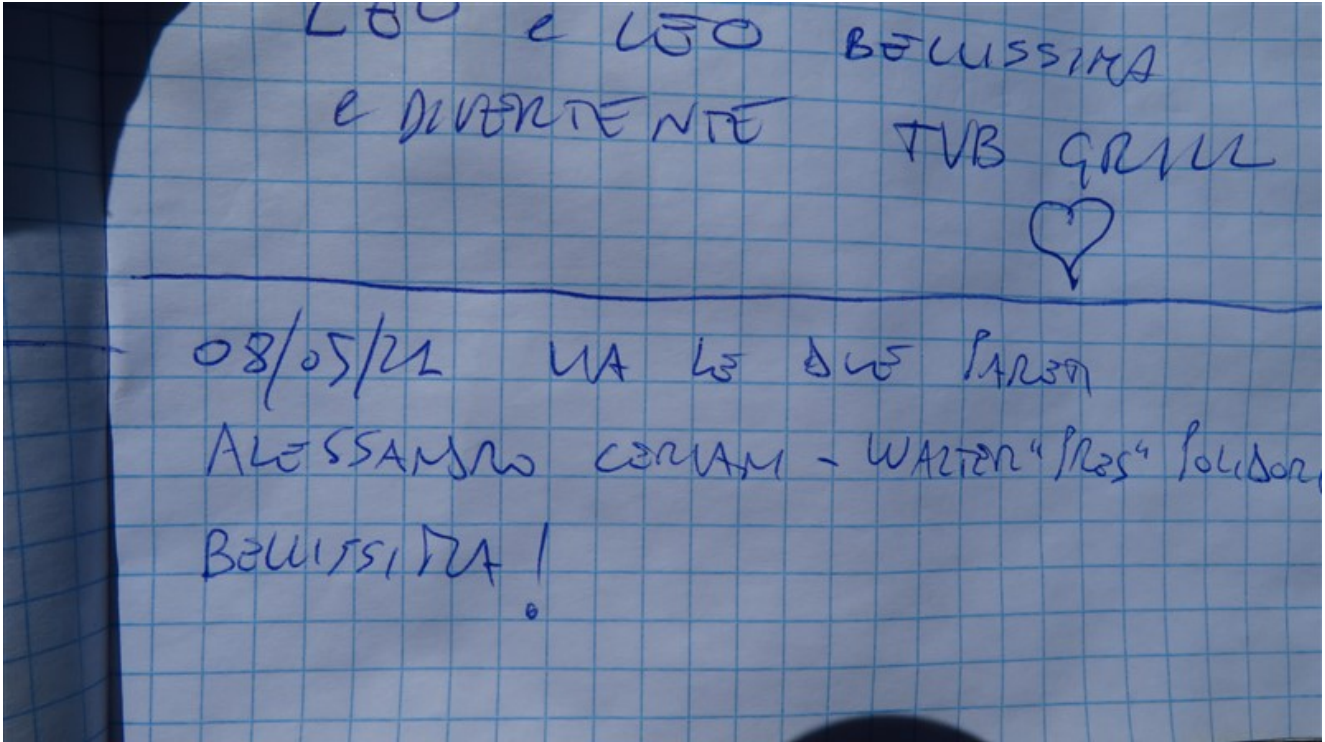 LEO e LEO BELLISSIMA
e DIVERTENTE TVB GRILL
08/05/21 VIA LE DUE PARETI
ALESSANDRO CERIANI - WALTER "PRES" POLIDORI
BELLISSIMA!